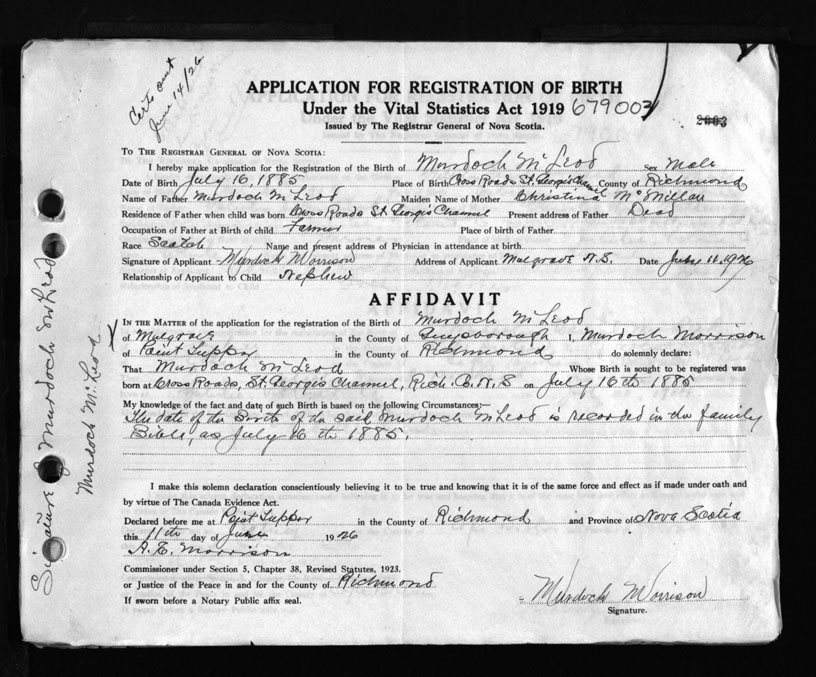 Certs out
June 14/26
APPLICATION FOR REGISTRATION OF BIRTH
Under the Vital Statistics Act 1919 679003
2003
Issued by The Registrar General of Nova Scotia.
To The Registrar General of Nova Scotia:
I hereby make application for the Registration of the Birth of Murdoch McLeod Sex Male
Date of Birth July 16, 1885 Place of Birth Cross Roads St. Georges Channel County of Richmond
Name of Father Murdoch McLeod Maiden Name of Mother Christina McMillan
Residence of Father when child was born Cross Roads St Georges Channel Present address of Father Dead
Occupation of Father at Birth of child Farmer Place of birth of Father
Race Scotch Name and present address of Physician in attendance at birth
Signature of Applicant Murdoch Morrison Address of Applicant Mulgrave N.S. Date June 11, 1926
Relationship of Applicant to Child Nephew
AFFIDAVIT
In the Matter of the application for the registration of the Birth of Murdoch McLeod
of Mulgrave in the County of Guysborough I, Murdoch Morrison
of Point Tupper in the County of Richmond do solemnly declare:
That Murdoch McLeod Whose Birth is sought to be registered was
born at Cross Roads, St. Georges Channel, Rich. Co. N.S on July 16th 1885
My knowledge of the fact and date of such Birth is based on the following Circumstances:—
The date of the Birth of the said Murdoch McLeod is recorded in the family
Bible, as July 16th 1885.
I make this solemn declaration conscientiously believing it to be true and knowing that it is of the same force and effect as if made under oath and
by virtue of The Canada Evidence Act.
Declared before me at Point Tupper in the County of Richmond and Province of Nova Scotia
this 11th day of June 1926
A. E. Morrison
Commissioner under Section 5, Chapter 38, Revised Statutes, 1923.
or Justice of the Peace in and for the County of Richmond
If sworn before a Notary Public affix seal.
Murdoch Morrison
Signature.
Signature of Murdoch McLeod
Murdoch McLeod